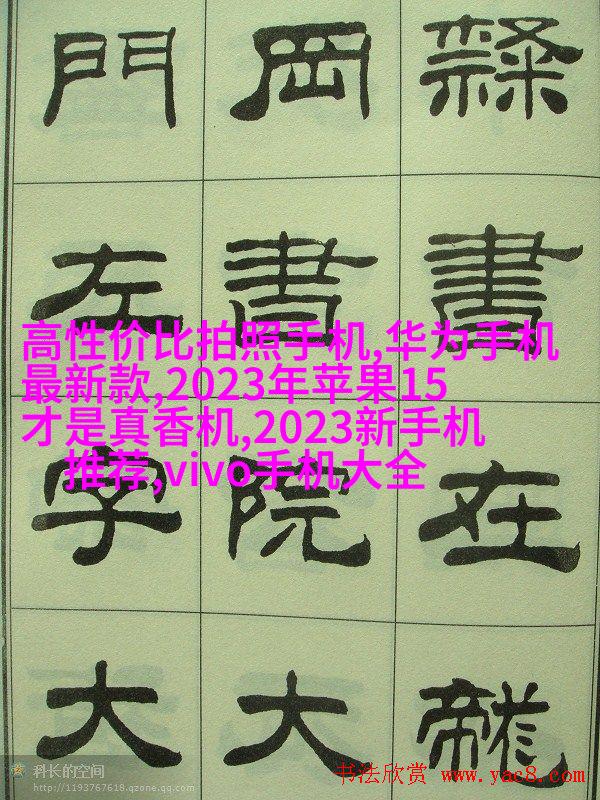 隸書在龍
岡書院大
門左字大
高性价比拍照手机,华为手机
最新款,2023年苹果15
才是真香机,2023新手机
推荐,vivo手机大全
科长的空间
http://1193767618.qzone.qq.com
书法欣赏 www.yac8.com